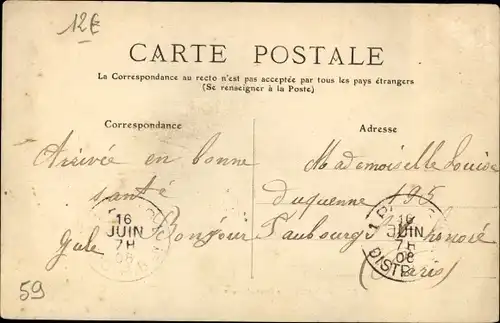 12€
CARTE POSTALE
La Correspondance au recto n'est pas acceptée par tous les pays étrangers
(Se renseigner à la Poste)
Correspondance
Adresse
Arrivée en bonne
santé
Bonjour
Mademoiselle Louise
duquenne 195
Faubourg St honoré
(Paris)
16
JUIN
7H
08
16
JUIN
7H
08
DISTR
59